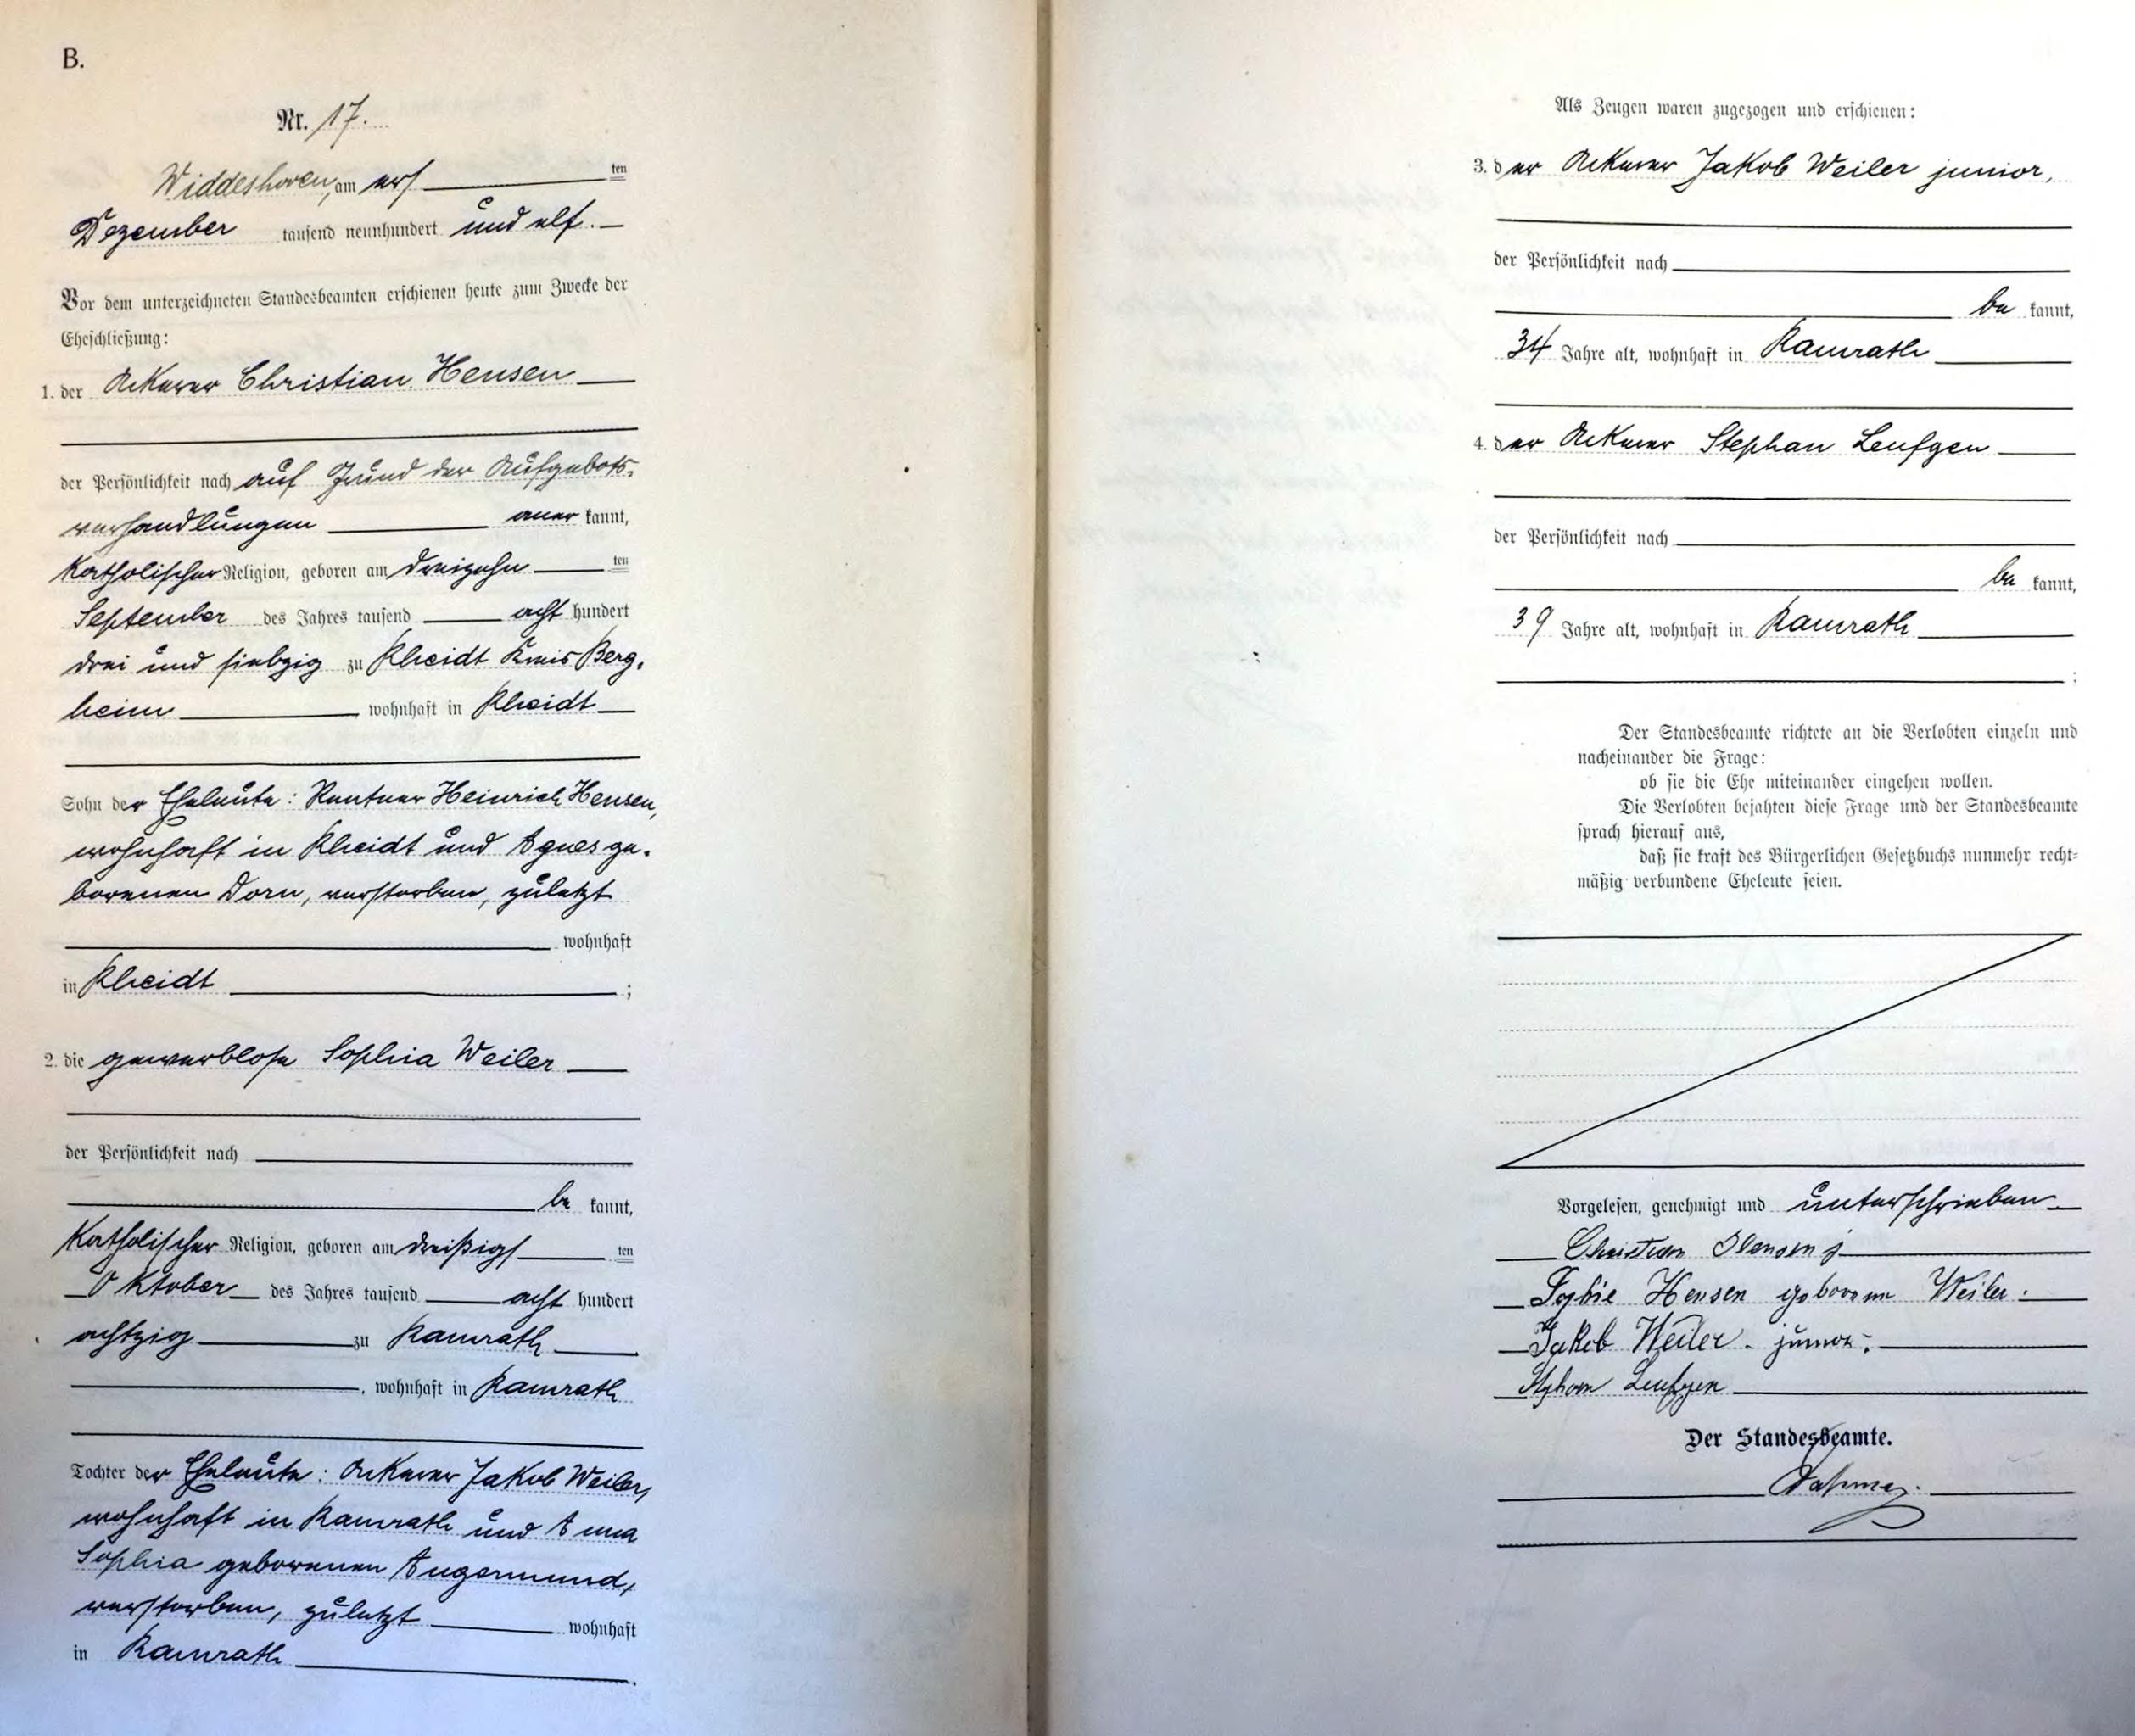 B.
Nr. 17.
Widdeshoven, am acht ten
Dezember tausend neunhundert und elf.
Vor dem unterzeichneten Standesbeamten erschienen heute zum Zwecke der
Eheschließung:
1. der Ackerer Christian Hensen
der Persönlichkeit nach auf Grund der Aufgebots-
verhandlungen aner kannt,
katholischer Religion, geboren am dreizehn ten
September des Jahres tausend acht hundert
drei und siebzig zu Rheidt Kreis Berg-
heim wohnhaft in Rheidt
Sohn der Eheleute: Rentner Heinrich Hensen,
wohnhaft in Rheidt und Agnes ge-
borenen Dorn, verstorben, zuletzt
wohnhaft
in Rheidt ;
2. die gewerblose Sophia Weiler
der Persönlichkeit nach
be kannt,
katholischer Religion, geboren am dreißigs ten
Oktober des Jahres tausend acht hundert
achtzig zu Ramrath
, wohnhaft in Ramrath
Tochter der Eheleute: Ackerer Jakob Weiler,
wohnhaft in Ramrath und Anna
Sophia geborenen Angermund,
verstorben, zuletzt wohnhaft
in Ramrath .
Als Zeugen waren zugezogen und erschienen:
3. der Ackerer Jakob Weiler junior,
der Persönlichkeit nach
be kannt,
34 Jahre alt, wohnhaft in Ramrath
4. der Ackerer Stephan Leufgen
der Persönlichkeit nach
be kannt,
39 Jahre alt, wohnhaft in Ramrath
;
Der Standesbeamte richtete an die Verlobten einzeln und
nacheinander die Frage:
ob sie die Ehe miteinander eingehen wollen.
Die Verlobten bejahten diese Frage und der Standesbeamte
sprach hierauf aus,
daß sie kraft des Bürgerlichen Gesetzbuchs nunmehr recht-
mäßig verbundene Eheleute seien.
Vorgelesen, genehmigt und unterschrieben
Christian Hensen
Sophie Hensen geborene Weiler.
Jakob Weiler junior.
Stephan Leufgen
Der Standesbeamte.